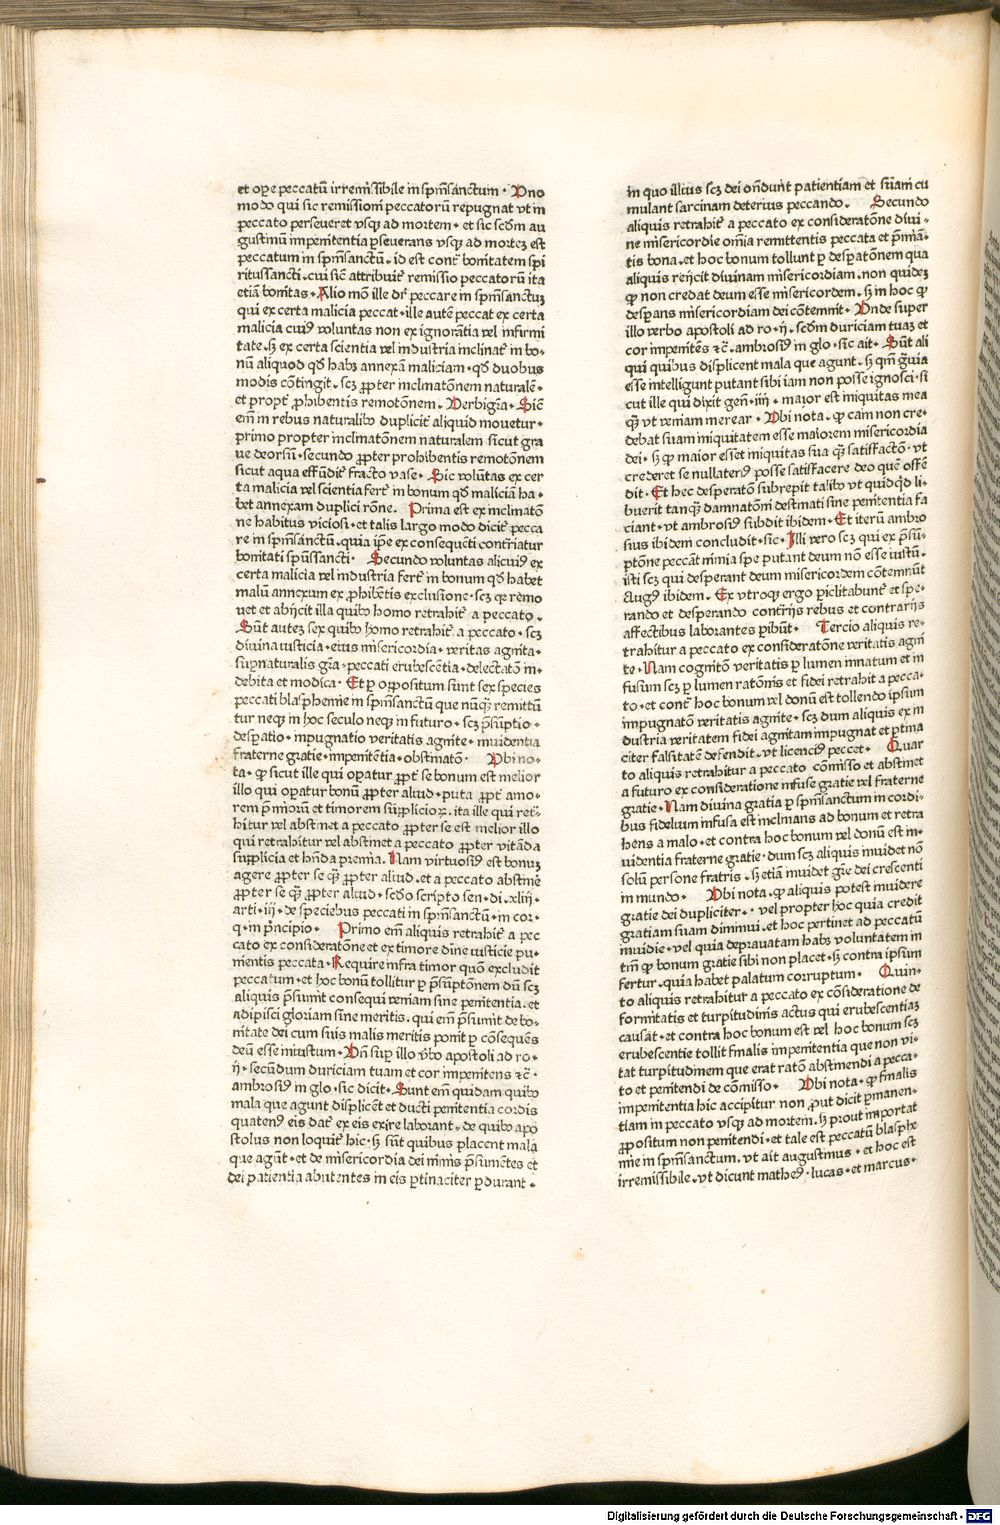 et oꝑe peccatū irremissibile in spm̄sanctum · Uno
modo qui sic remissioni peccatorū repugnat vt in
peccato perseueret vsqꝫ ad mortem · et sic scd̄m au
gustinū impenitentia ꝑseuerans vsqꝫ ad morteꝫ est
peccatum in spm̄sanctū · id est contᷓ bonitatem spi
ritussancti · cui sicᷓ attribuitᷓ remissio peccatorū ita
etiā bonitas · Alio mō ille dr̄ peccare in spm̄sanctuꝫ
qui ex certa malicia peccat · ille autē peccat ex certa
malicia cuiꝰ voluntas non ex ignorātia vel infirmi
tate · sꝫ ex certa scientia vel industria inclinatᷓ in bo⸗
nū aliquod qd̄ habꝫ annexā maliciam · qd̄ duobus
modis cōtingit · scꝫ ꝓpter inclinatōnem naturalē ·
et proptᷓ ꝓhibentis remotōnem · Uerbigr̄a · Sicᷓ
em̄ in rebus naturalibꝰ duplicitᷓ aliquid mouetur ·
primo propter inclinatōnem naturalem sicut gra
ue deorsū · secundo ꝓpter prohibentis remotōnem
sicut aqua effūditᷓ fracto vase · Sic volūtas ex cer
ta malicia vel scientia fertᷓ in bonum qd̄ maliciā ha⸗
bet annexam duplici rōne · Prima est ex inclinatō
ne habitus viciosi · et talis largo modo dicitᷓ pecca
re in spm̄sanctū · quia ip̄e ex consequēti contr̄iatur
bonitati spūssancti · Secundo voluntas alicuiꝰ ex
certa malicia vel industria fertᷓ in bonum qd̄ habet
malū annexum ex ꝓhibētis exclusione · scꝫ qꝛ remo
uet et abijcit illa quibꝰ homo retrahitᷓ a peccato ·
Sūt auteꝫ sex quibꝰ homo retrahitᷓ a peccato · scꝫ
diuina iusticia · eius misericordia · veritas agnita ·
suꝑnaturalis gr̄a · peccati erubescētia · delectatō in⸗
debita et modica · Et ꝑ oppositum sunt sex species
peccati blasphemie in spm̄sanctū que nūqᷓ remittū
tur neqꝫ in hoc seculo neqꝫ in futuro · scꝫ p̄sūptio ·
desꝑatio · inpugnatio veritatis agnite · inuidentia
fraterne gratie · impenitētia · obstinatō · Ubi no⸗
ta · qꝙ sicut ille qui oꝑatur ꝓptᷓ se bonum est melior
illo qui oꝑatur bonū ꝓpter aliud · puta ꝓptᷓ amo⸗
rem p̄miorū et timorem supplicioꝝ · ita ille qui retᷓ⸗
hitur vel abstinet a peccato ꝓpter se est melior illo
qui retrahitur vel abstinet a peccato ꝓpter vitāda
supplicia et hn̄da premia · Nam virtuosiꝰ est bonuꝫ
agere ꝓpter se qᷓ ꝓpter aliud · et a peccato abstinē
ꝓpter se qᷓ ꝓpter aliud · scd̄o scripto sen · di · xliij ·
arti · iij · de speciebus peccati in spm̄sanctū · in cor⸗
q · in p̄ncipio · Primo em̄ aliquis retrahitᷓ a pec
cato ex consideratōne et ex timore diuīe iusticie pu⸗
nientis peccata · Require infra timor quō excludit
peccatum · et hoc bonū tollitur ꝑ p̄sūptōnem dū scꝫ
aliquis p̄sumit consequi veniam sine penitentia · et
adipisci gloriam sine meritis · qui em̄ p̄sumit de bo⸗
nitate dei cum suis malis meritis ponit ꝑ cōsequēs
deū esse iniustum · Uñ suꝑ illo v̓bo apostoli ad ro ·
ij · secūdum duriciam tuam et cor impenitens ⁊c̄ ·
ambrosiꝰ in glo · sic dicit · Sunt em̄ quidam quibꝰ
mala que agunt displicēt et ducti penitentia cordis
quatenꝰ eis datᷓ ex eis exire laborant · de quibꝰ apo
stolus non loquitᷓ hic · sꝫ sūt quibus placent mala
que agūt · et de misericordia dei nimis p̄sumētes et
dei patientia abutentes in eis ꝑtinaciter ꝑdurant ·
in quo illius scꝫ dei ondūt patientiam et suam cu
mulant sarcinam deterius peccando · Secundo
aliquis retrahitᷓ a peccato ex consideratōne diui⸗
ne misericordie om̄ia remittentis peccata et p̄miā⸗
tis bona · et hoc bonum tollunt ꝑ desꝑatōnem qua
aliquis reijcit diuinam misericordiam · non quideꝫ
qꝙ non credat deum esse misericordem · sꝫ in hoc qꝙ
desꝑans misericordiam dei cōtemnit · Unde super
illo verbo apostoli ad ro · ij · scd̄m duriciam tuaꝫ et
cor impenitēs ⁊c̄ · ambrosiꝰ in glo · sic ait · Sūt ali
qui quibus displicent mala que agunt · sꝫ qm̄ grauia
esse intelligunt putant sibi iam non posse ignosci · si
cut ille qui dixit gen̄ · iiij · maior est iniquitas mea
qᷓ vt veniam merear · Ubi nota · qꝙ cain non cre⸗
debat suam iniquitatem esse maiorem misericordia
dei · sꝫ qꝙ maior esset iniquitas sua qᷓ satisfactō · vt
crederet se nullatenꝰ posse satisfacere deo quē offē
dit · Et hec desperatō subrepit talibꝰ vt quidqͥd li⸗
buerit tanqᷓ damnatōni destinati sine penitentia fa
ciant · vt ambrosiꝰ subdit ibidem · Et iterū ambro
sius ibidem concludit · sic · Illi vero scꝫ qui ex p̄sū⸗
ptōne peccāt nimia spe putant deum nō esse iustū ·
isti scꝫ qui desperant deum misericordem cōtemnūt
Augꝰ ibidem · Ex vtroqꝫ ergo ꝑiclitabuntᷓ et spe⸗
rando et desperando contr̄ijs rebus et contrarijs
affectibus laborantes ꝑibūt · Tercio aliquis re⸗
trahitur a peccato ex consideratōne veritatis agni
te · Nam cognitō veritatis ꝑ lumen innatum et in
fusum scꝫ ꝑ lumen ratōnis et fidei retrahit a pecca⸗
to · et contᷓ hoc bonum vel donū est tollendo ipsum
impugnatō veritatis agnite · scꝫ dum aliquis ex in
dustria veritatem fidei agnitam impugnat et ꝑtina
citer falsitatē defendit · vt licenciꝰ peccet · Quar
to aliquis retrahitur a peccato cōmisso et abstinet
a futuro ex consideratione infuse gratie vel fraterne
gratie · Nam diuina gratia ꝑ spm̄sanctum in cordi⸗
bus fidelium infusa est inclinans ad bonum et retra
hens a malo · et contra hoc bonum vel donū est in⸗
uidentia fraterne gratie · dum scꝫ aliquis inuidet nō
solū persone fratris · sꝫ etiā inuidet gr̄e dei crescenti
in mundo · Ubi nota · qꝙ aliquis potest inuidere
gratie dei dupliciter · vel propter hoc quia credit
gratiam suam diminui · et hoc pertinet ad peccatū
inuidie · vel quia deprauatam habꝫ voluntatem in
tm̄ qꝙ bonum gratie sibi non placet · sꝫ contra ipsum
fertur · quia habet palatum corruptum · Quin⸗
to aliquis retrahitur a peccato ex cōsideratione de
formitatis et turpitudinis actus qui erubescentiaꝫ
causat · et contra hoc bonum est vel hoc bonum scꝫ
erubescentie tollit finalis impenitentia que non vi⸗
tat turpitudinem que erat ratō abstinendi a pecca⸗
to et penitendi de cōmisso · Ubi nota · qꝙ finalis
impenitentia hic accipitur non ꝓut dicit ꝑmanen⸗
tiam in peccato vsqꝫ ad mortem · sꝫ prout importat
ꝓpositum non penitendi · et tale est peccatū blasphe
mie in spm̄sanctum · vt ait augustinus · et hoc est
irremissibile · vt dicunt matheꝰ · lucas · et marcus ·
Digitalisierung gefördert durch die Deutsche Forschungsgemeinschaft - DFG